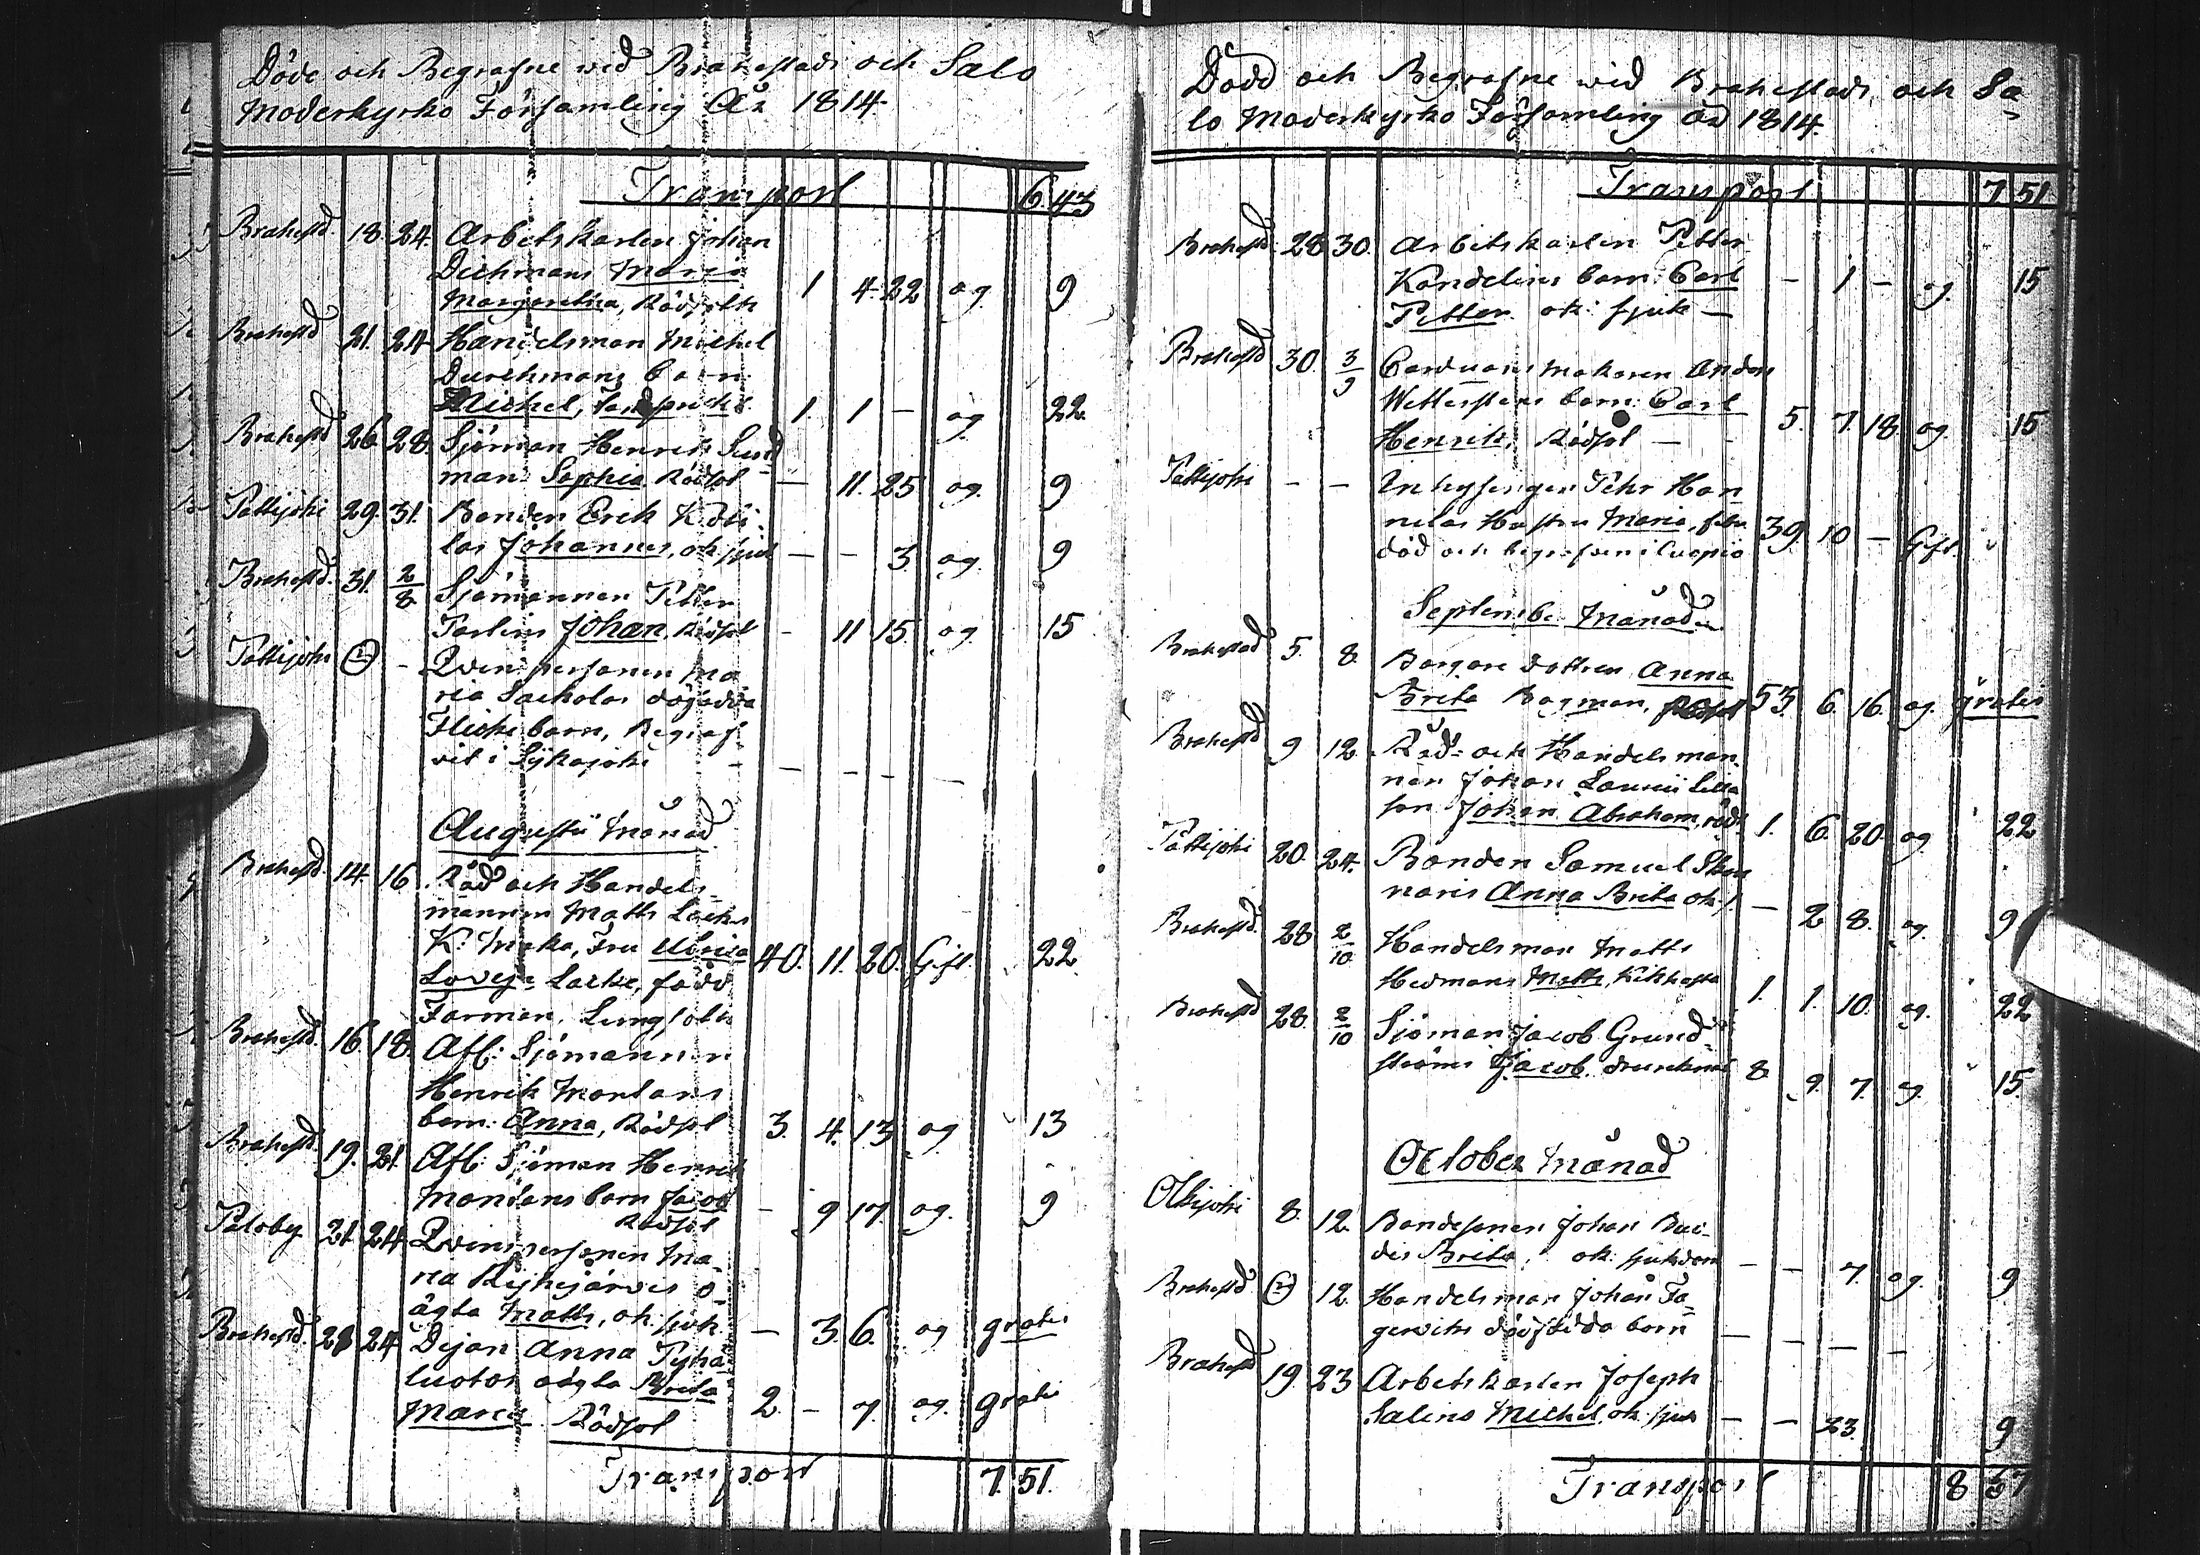 Döde och Begrafne wid Brahestads och Salo
Moderkyrko Församling År 1814.
Transport 6 43
Brahestd. 18. 24. Arbetskarlen Johan
Dichmans Maria
Margaretha, Rödsots 1 4 22 og 9
Brahestd 21. 24 Handelsman Michel
Durchmans barn
Michel, 1. 1 - og 22
Brahestd 26 28. Sjöman Henrik Sund
mans Sophia Rödsot - 11. 25 og. 9
Pattijoki 29. 31. Bonden Erik
las Johannes, ok sjuk - - 3 og 9
Brahestd. 31. 2/8 Sjömannen Petter
Parlins Johan, Rödsot - 11 15. og. 15
Pattijoki - Qvinspersonen Ma
ria dödfödda
Flicke barn, Begraf
vit i - - - -
Augustii Månad
Brahestd. 14. 16 Råd och Handels-
mannen Matts Lackes
K: Maka, Fru Ulrica 40. 11. 20. Gift. 22
Lovisa Lacke, född
Forman, Lungsot
Brahestd. 16. 18. Afl: Sjömannen
Henrik Montans
barn Anna, Rödsot 3. 4. 13 og 13
Brahestd. 19. 21. Afl: Sjöman Henrik
Montans barn Jacob
Rödsot - 9 17. og. 9
Paloby 21. 24 Qvinspersonen Ma-
ria o-
ägta Matts, ok: sjuk. - 3. 6. og gratis
Brahestd. 21 24 Pijan Anna Pyhä
luoton oägta Brita
Maria Rödsot 2 - 7. og. gratis
Transport 7 51.
Död och Begrafne wid Brahestads och Sa-
lo Moderkyrko Församling År 1814.
Transport 7 51.
Brahestd. 28 30. Arbetskarlen Petter
Kandelins barn: Carl - 1 - og. 15
Petter ok: sjuk -
Brahestd 30. 3/9 Carduansmakaren Anders
Wettersteins barn: Carl
Henrik, Rödsot - 5. 7. 18. og 15
Pattijoki - - Inhysingen Pehr Han
nilas Hustru Maria, 39. 10 - Gift
död och begrafven i Cuopio
September Månad
Brahestad 5. 8. Borgare dottren Anna
Brita Bagman, 53. 6. 16. og gratis
Brahestd 9 12. Råd- och Handelsman
nen Johan Lilla
son Johan Abraham, röds 1. 6. 20. og. 22
Pattijoki 20. 24. Bonden Samuel
naris Anna Brita ok s. - 2 8. og. 9
Brahestd. 28 2/10 Handelsman Matts
Hedmans Matts, Kikhosta 1. 1. 10. og. 22
Brahestd 28. 2/10 Sjöman Jacob Grund-
ströms Jacob drunknad 8. 9. 7. og. 15.
October Månad
Olkijoki 8. 12. Bondesonen Johan
Brita, ok: sjukdom - - 7 og. 9
Brahestd 12. Handelsman Johan Fa-
gerviks dödfödda barn - - - -
Brahestd 19. 23 Arbetskarlen Joseph
Salins Michel, ok: sjuk - - 23. 9
Transport 8 57